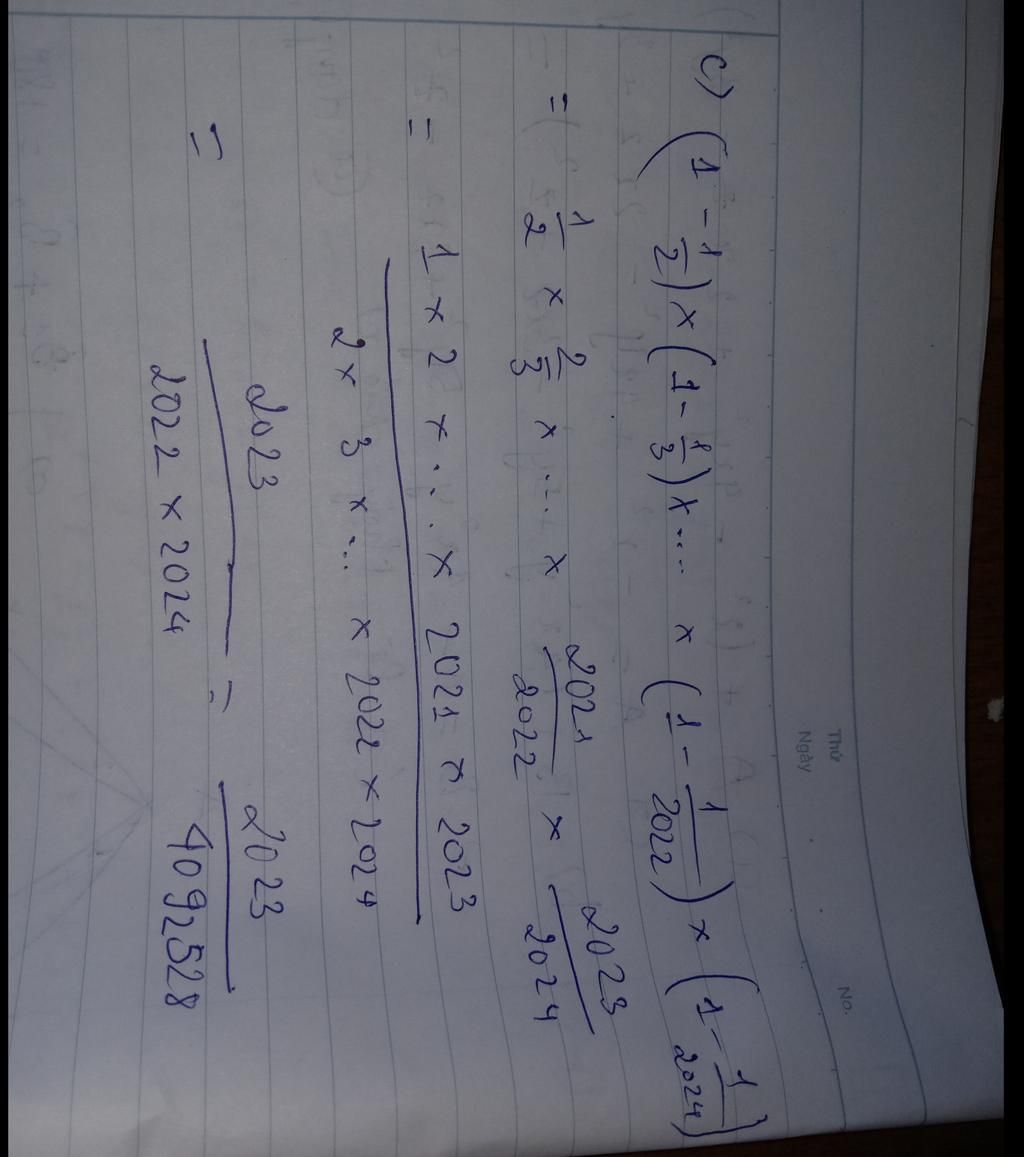 Thứ
Ngày No.
c) (1 - 1/2) x (1 - 1/3) x ... x (1 - 1/2022) x (1 - 1/2024)
= 1/2 x 2/3 x ... x 2021/2022 x 2023/2024
= 1 x 2 x ... x 2021 x 2023
2 x 3 x ... x 2022 x 2024
= 2023/(2022 x 2024) = 2023/4092528